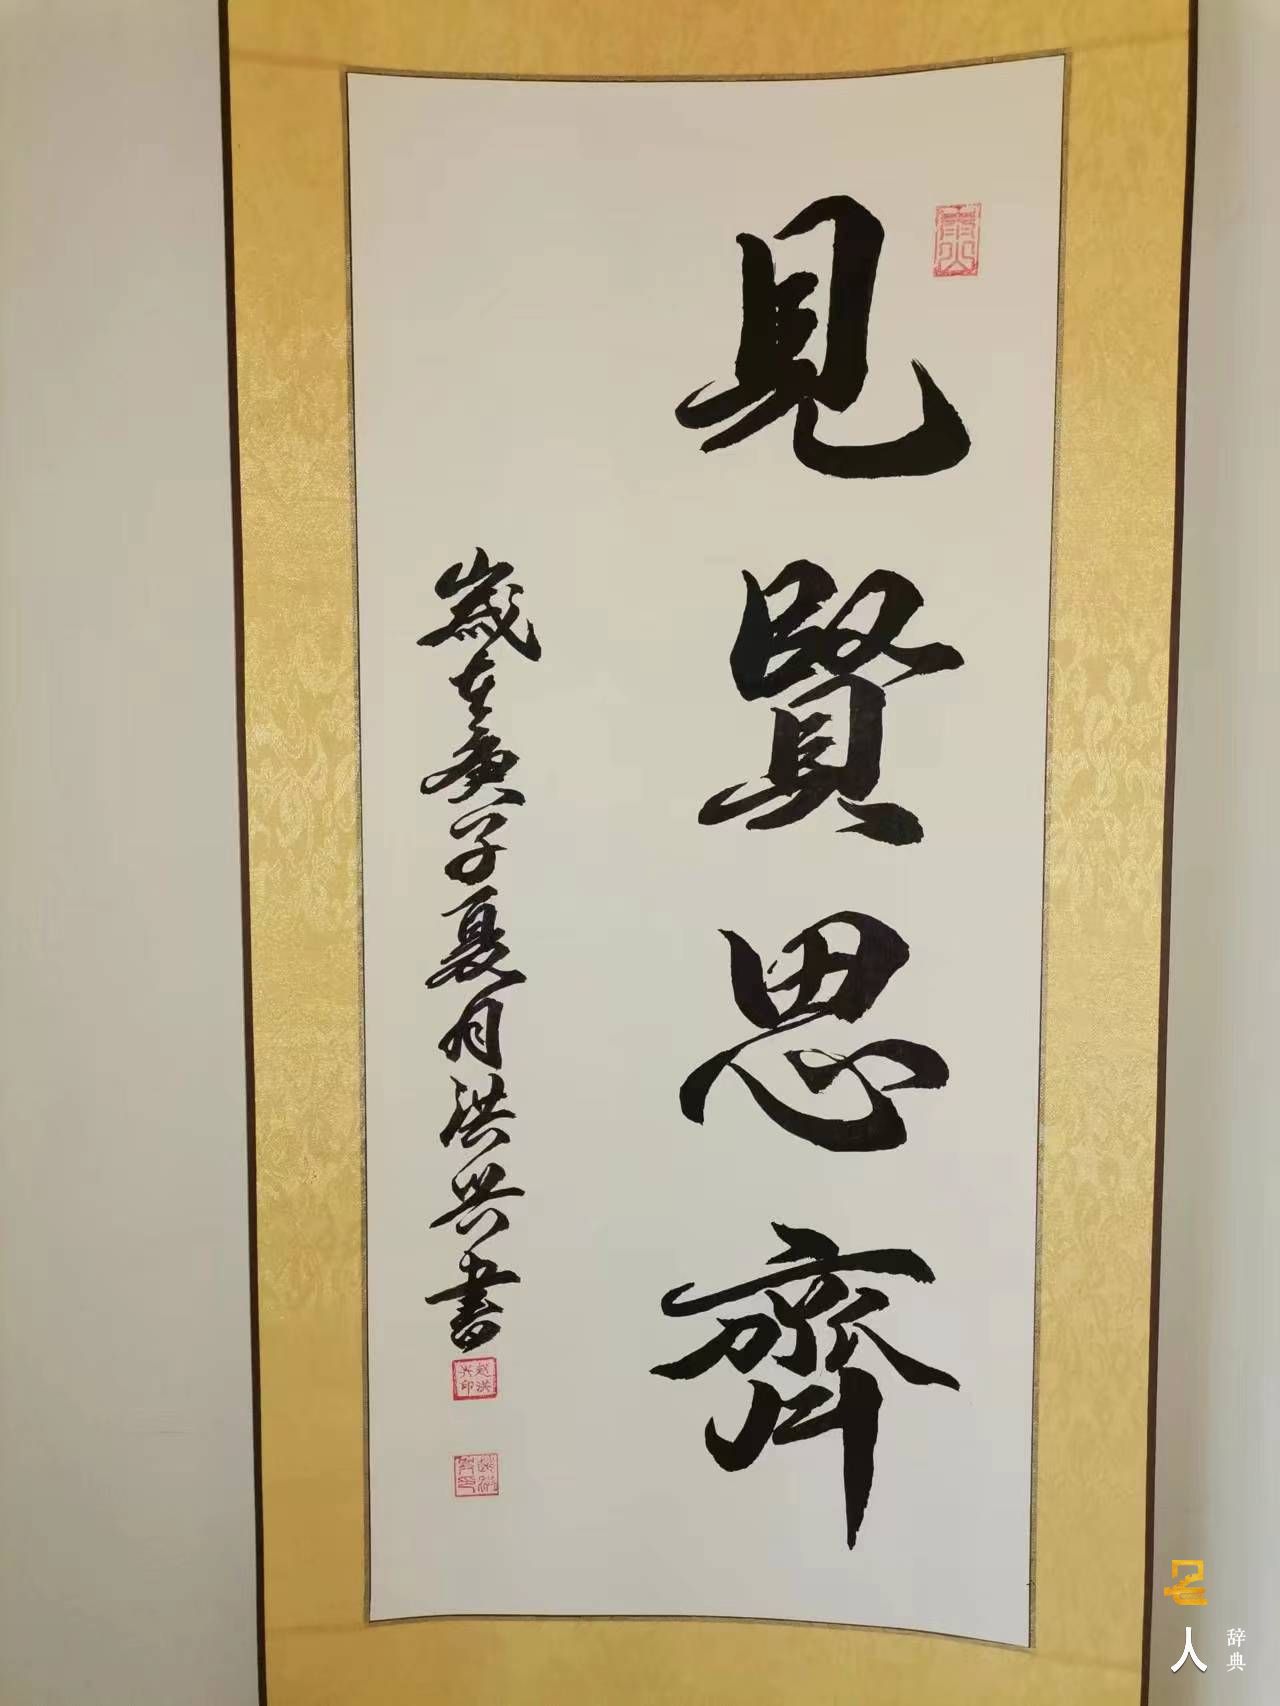 見賢思齊
歲在庚子夏月洪兴書
赵洪兴印
名人
辞典